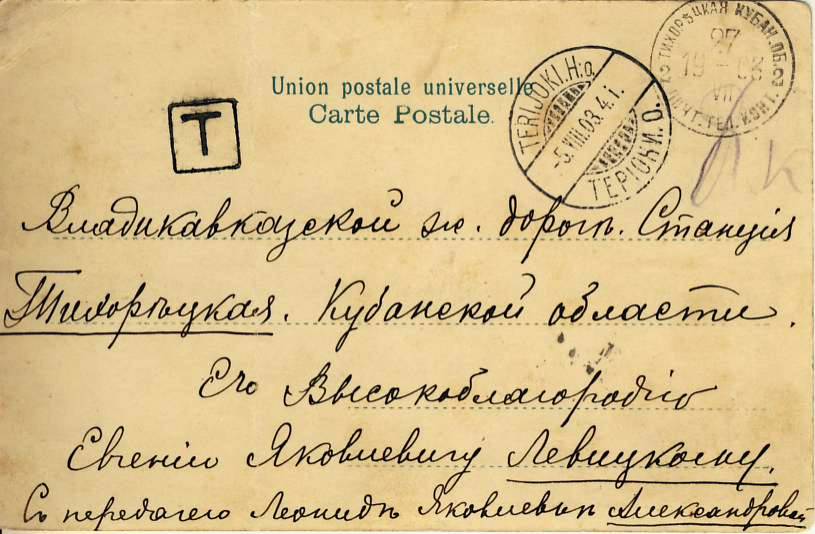 Union postale universelle
Carte Postale.
T
TERIJOKI. H:o.
-5.VIII.03.4.i.
ТЕРІОКИ. О.
ТИХОРѢЦКАЯ КУБАН. ОБ.
27
19 - 03
VII
ПОЧТ. ТЕЛ. КОНТ.
Владикавказской ж. дорогѣ. Станція
Тихорѣцкая. Кубанской области.
Его Высокоблагородію
Евгенію Яковлевичу Левицкому.
Съ передачею Леонидъ Яковлевнѣ Александровой